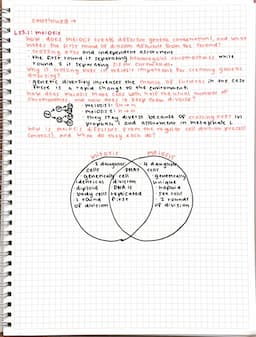 continued →
L23.1: meiosis
how does meiosis create different genetic combinations, and what
makes the first round of division different from the second?
crossing over and independent assortment
the first round is separating homologous chromosomes while
round 2 is separating sister chromatids
why is crossing over in meiosis important for creating genetic
diversity?
genetic diversity increases the chances of survival in the case
there is a rapid change to the environment.
how does meiosis make cells with half the usual number of
chromosomes, and how does it keep them diverse?
meiosis I
meiosis II
they stay diverse because of crossing over in
prophase I and alignment in metaphase I
how is meiosis different from the regular cell division process
(mitosis), and what do they each do?
mitosis meiosis
2 daughter 4 daughter
cells DNA cells
genetically cell genetically
identical division unique
diploid DNA is haploid
body cells replicated sex cells
1 round first 2 rounds
of division of division